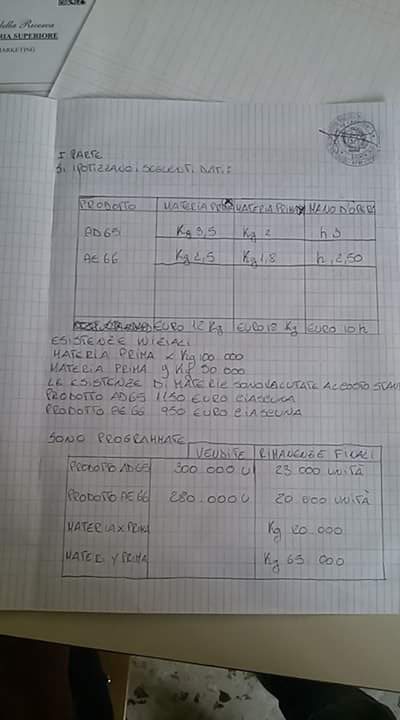 della Ricerca
RIA SUPERIORE
MARKETING
I PARTE
SI IPOTIZZANO I SEGUENTI DATI:
PRODOTTO MATERIA PRIMA X MATERIA PRIMA Y MANO D'OPERA
AD65 Kg 3,5 Kg 2 h 3
AE 66 Kg 2,5 Kg 1,8 h, 2,50
EURO 12 Kg EURO 18 Kg EURO 10 h
ESISTENZE INIZIALI
MATERIA PRIMA x Kg 100.000
MATERIA PRIMA y Kg 50 000
LE ESISTENZE DI MATERIE SONO VALUTATE AL COSTO STAN
PRODOTTO AD65 1150 EURO CIASCUNA
PRODOTTO AE 66 950 EURO CIASCUNA
SONO PROGRAMMATE
VENDITE RIMANENZE FINALI
PRODOTTO AD65 300.000 U 23 000 UNITÀ
PRODOTTO AE 66 280.000 U 20 000 UNITÀ
MATERIA X PRIMA Kg 80.000
MATERI Y PRIMA Kg 65 000